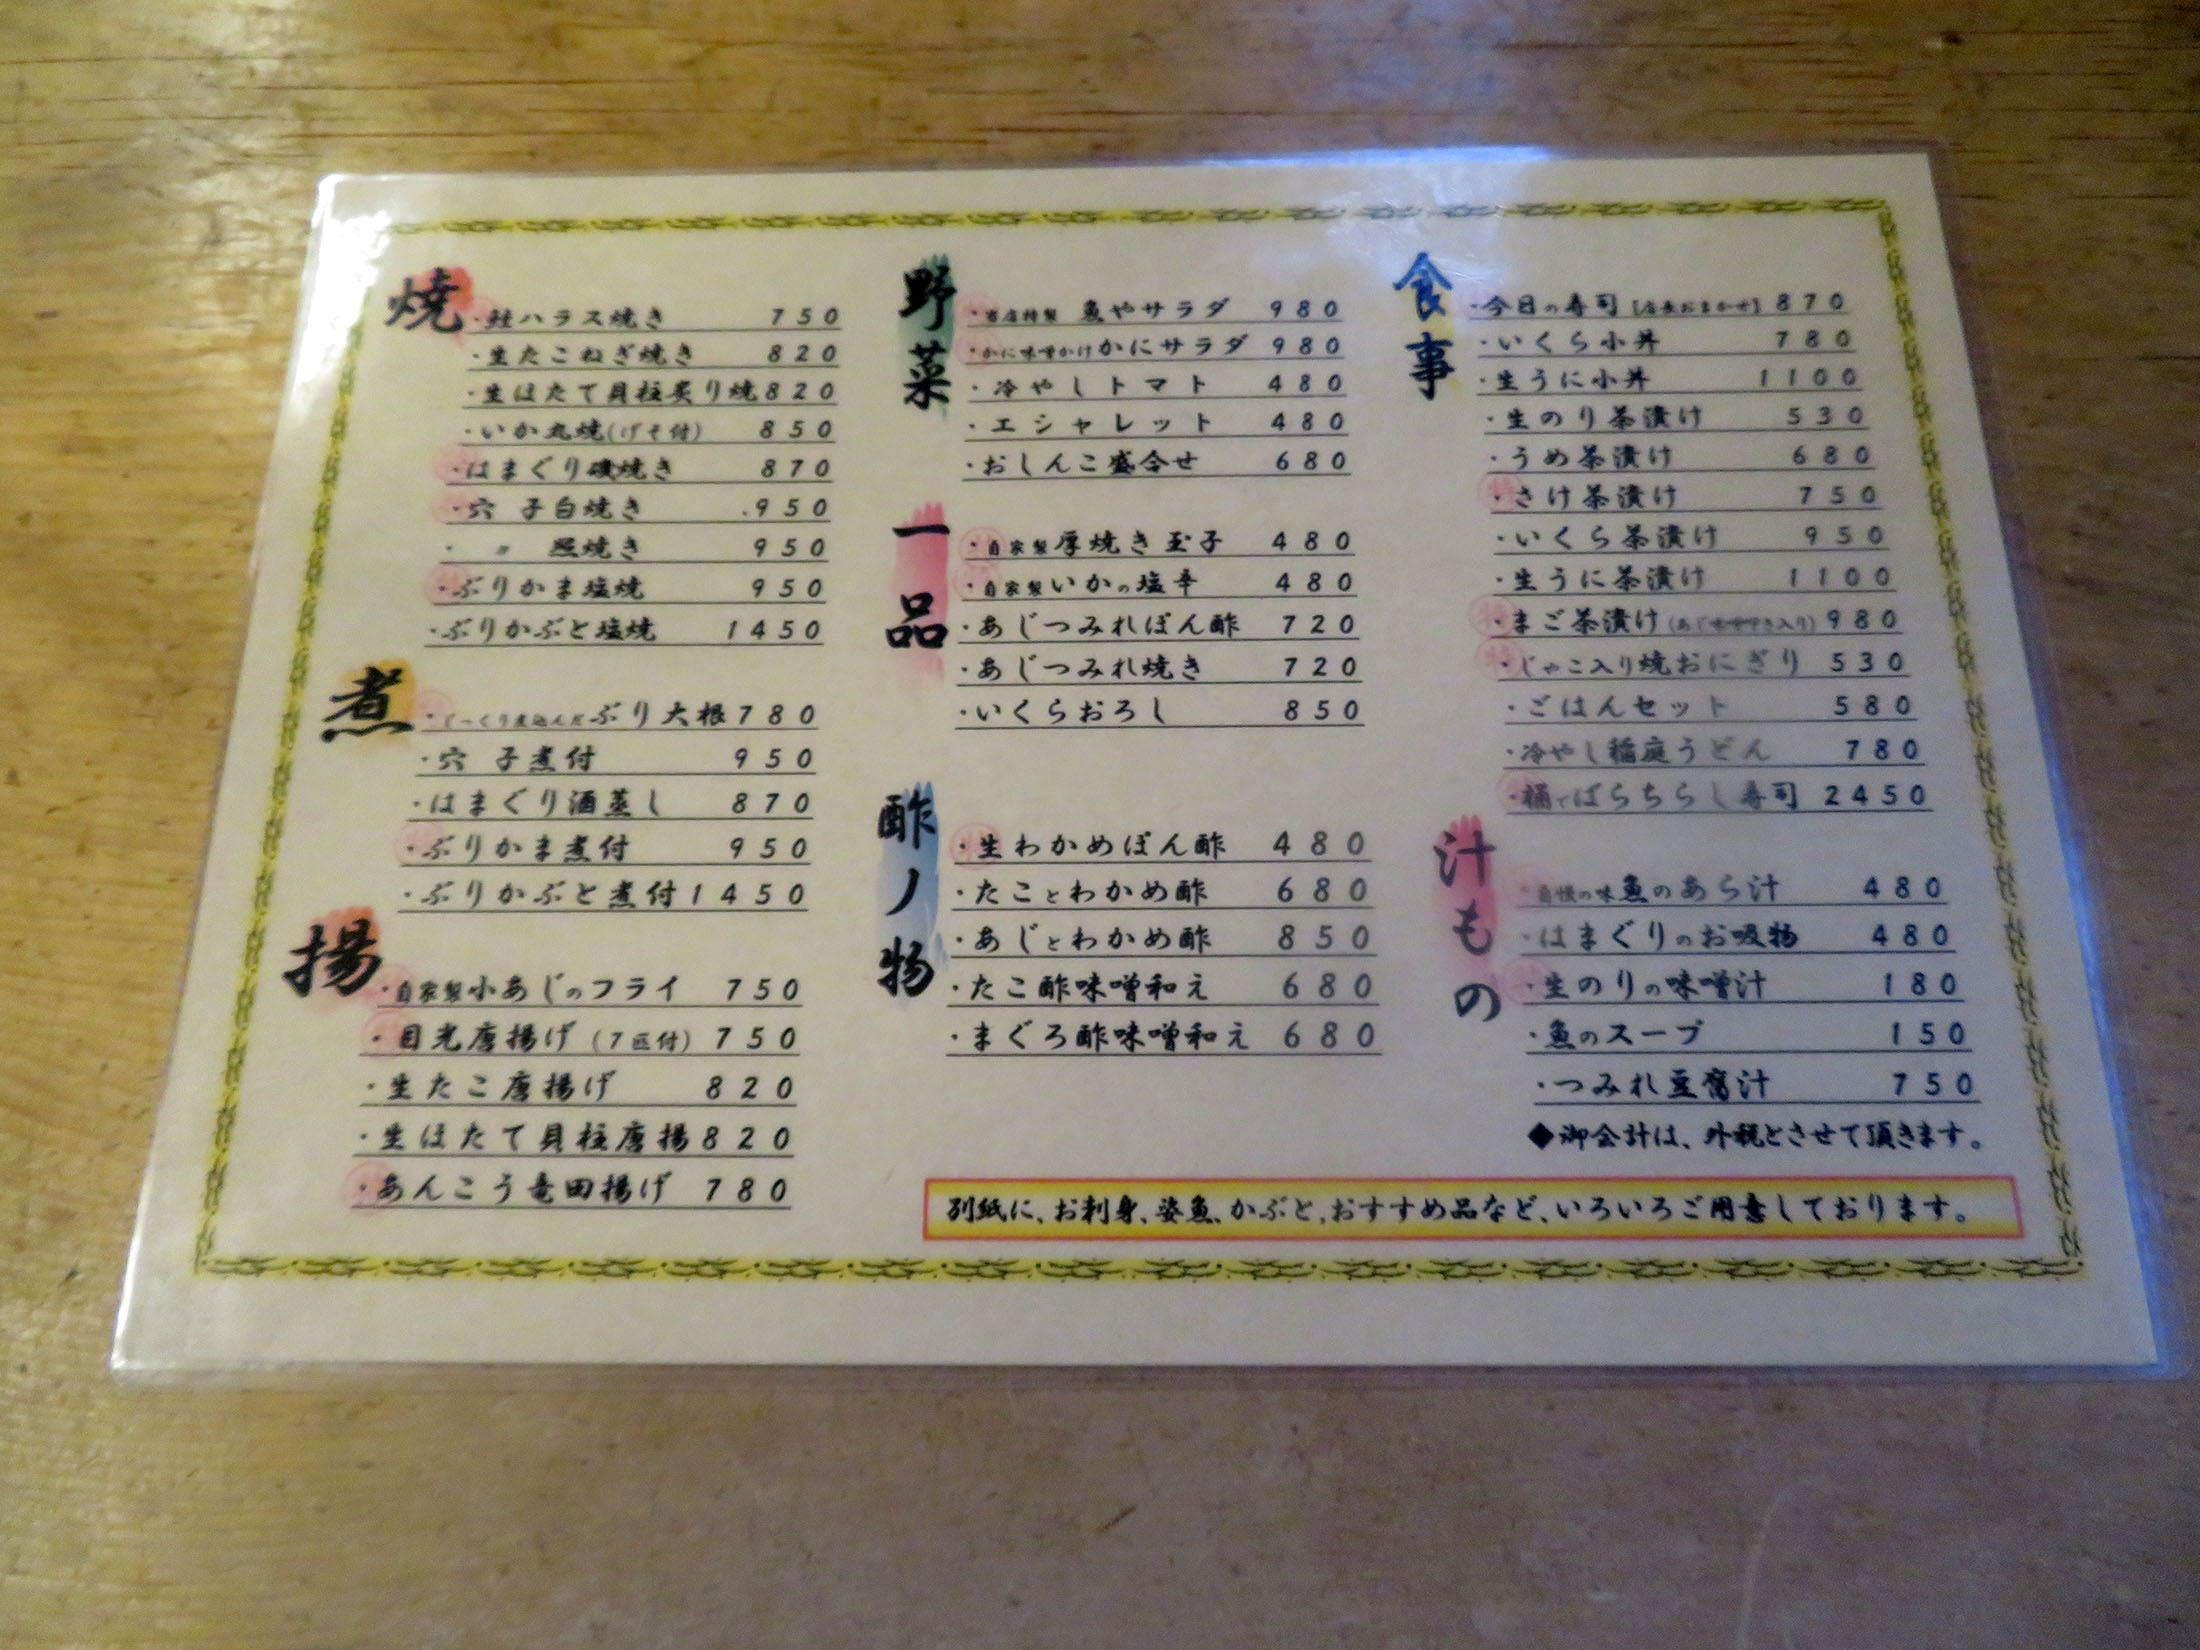 焼
・鮭ハラス焼き 750
・生たこねぎ焼き 820
・生ほたて貝柱炙り焼 820
・いか丸焼(げそ付) 850
・はまぐり磯焼き 870
・穴子白焼き 950
・〃 照焼き 950
・ぶりかま塩焼 950
・ぶりかぶと塩焼 1450
煮
・じっくり煮込んだぶり大根 780
・穴子煮付 950
・はまぐり酒蒸し 870
・ぶりかま煮付 950
・ぶりかぶと煮付 1450
揚
・自家製小あじのフライ 750
・目光唐揚げ(7匹付) 750
・生たこ唐揚げ 820
・生ほたて貝柱唐揚 820
・あんこう竜田揚げ 780
野菜
・当店特製 魚やサラダ 980
・かに味噌かけかにサラダ 980
・冷やしトマト 480
・エシャレット 480
・おしんこ盛合せ 680
一品
・自家製厚焼き玉子 480
・自家製いかの塩辛 480
・あじつみれぽん酢 720
・あじつみれ焼き 720
・いくらおろし 850
酢ノ物
・生わかめぽん酢 480
・たことわかめ酢 680
・あじとわかめ酢 850
・たこ酢味噌和え 680
・まぐろ酢味噌和え 680
食事
・今日の寿司[店長おまかせ] 870
・いくら小丼 780
・生うに小丼 1100
・生のり茶漬け 530
・うめ茶漬け 680
・さけ茶漬け 750
・いくら茶漬け 950
・生うに茶漬け 1100
・まご茶漬け(あじ味噌叩き入り) 980
・じゃこ入り焼おにぎり 530
・ごはんセット 580
・冷やし稲庭うどん 780
・桶でばらちらし寿司 2450
汁もの
・自慢の味魚のあら汁 480
・はまぐりのお吸物 480
・生のりの味噌汁 180
・魚のスープ 150
・つみれ豆腐汁 750
◆御会計は、外税とさせて頂きます。
別紙に、お刺身、姿魚、かぶと、おすすめ品など、いろいろご用意しております。